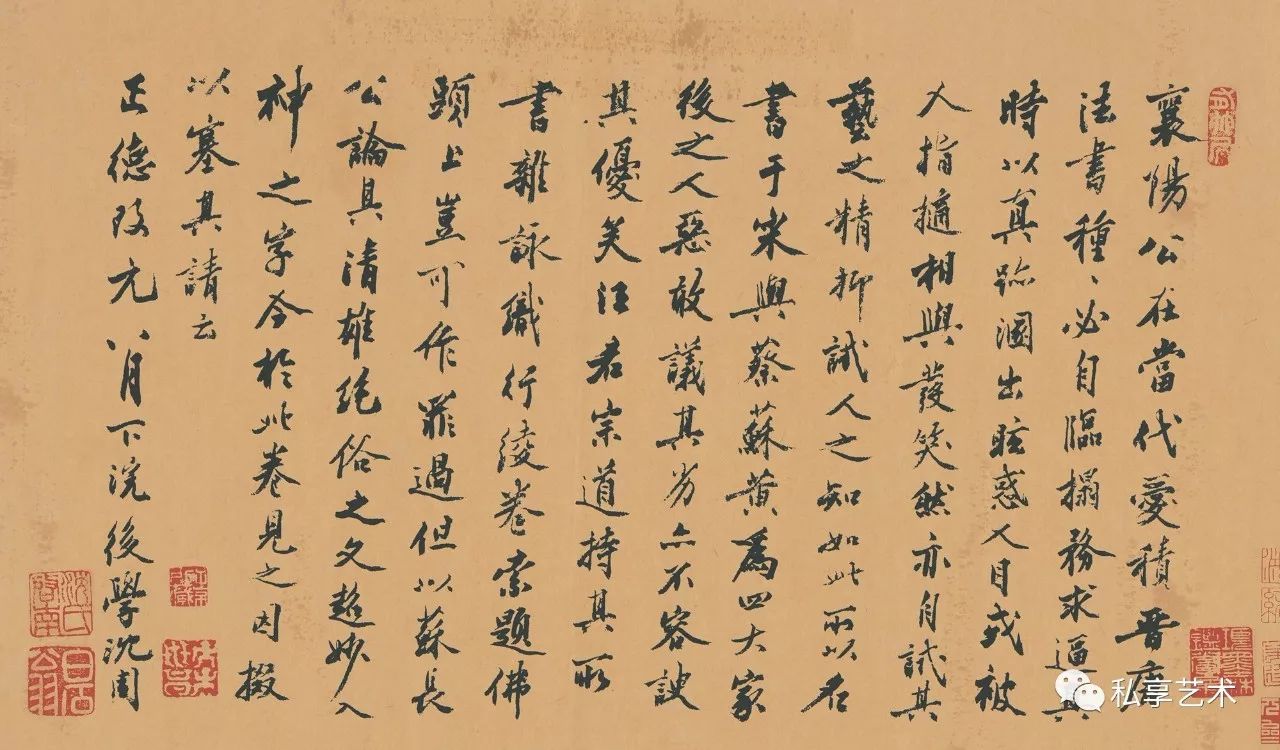 襄陽公在當代愛積晉唐
法書種〻必自臨搨務求逼其
時以真跡溷出眩惑人目或被
人指擿相與發笑然亦自試其
藝之精抑試人之知如此所以名
書于宋與蔡蘇黄為四大家
後之人惡敢議其劣亦不容諛
其優矣汪君宗道持其所
書雜詠織行綾卷索題佛
頭上豈可作罪過但以蘇長
公論具清雄絶俗之文超妙入
神之字今於此卷見之因掇
以塞其請云
正德改元八月下浣後學沈周
沈氏啓南
白石翁
私享艺术